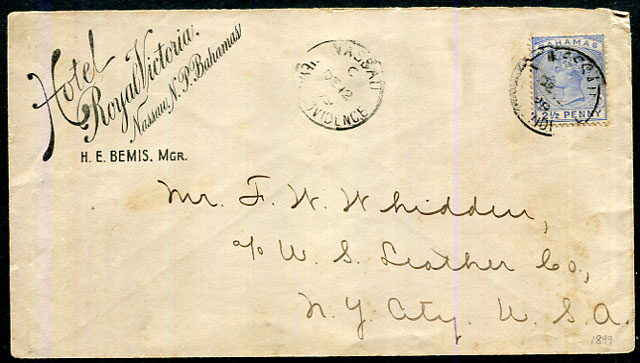 Hotel
Royal Victoria.
Nassau, N.P. Bahamas
H. E. BEMIS, MGR.
NASSAU
C
DE 12
BAHAMAS
2½ PENNY
Mr. F. W. Whidden,
c/o U. S. Leather Co.,
N. Y. City. U. S. A.
1899